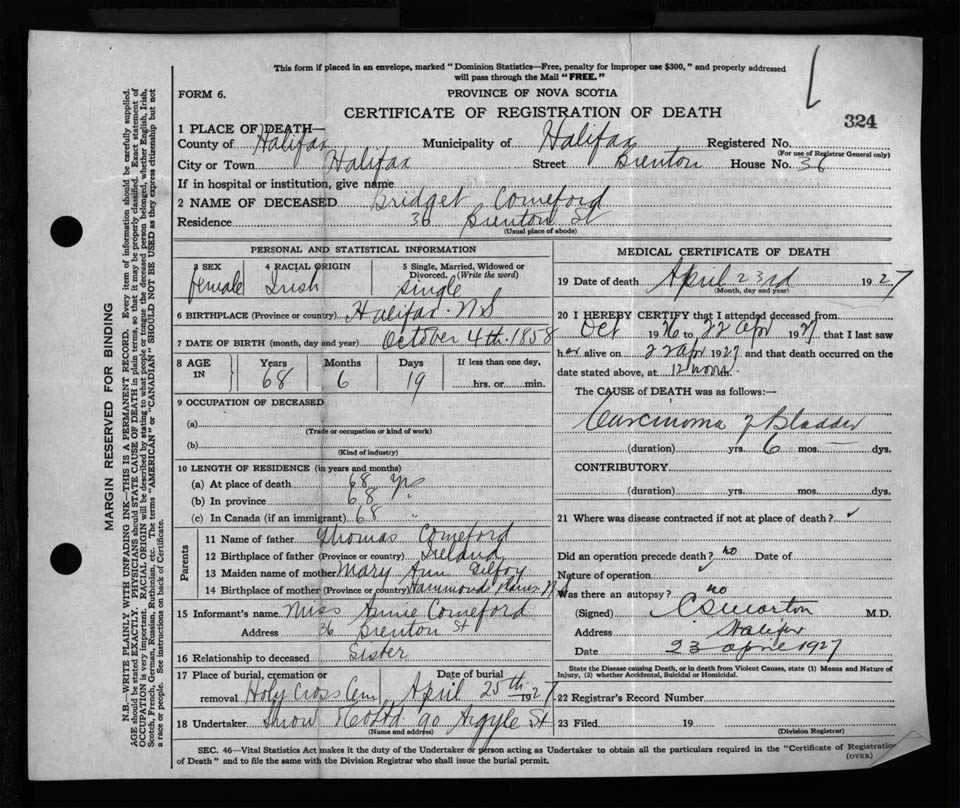 This form if placed in an envelope, marked "Dominion Statistics—Free, penalty for improper use $300," and properly addressed
will pass through the Mail "FREE."
FORM 6.
PROVINCE OF NOVA SCOTIA
CERTIFICATE OF REGISTRATION OF DEATH
324
1 PLACE OF DEATH—
County of Halifax Municipality of Halifax Registered No.
(For use of Registrar General only)
City or Town Halifax Street Brenton House No. 36
If in hospital or institution, give name
2 NAME OF DECEASED Bridget Comeford
Residence 36 Brenton St
(Usual place of abode)
PERSONAL AND STATISTICAL INFORMATION
3 SEX 4 RACIAL ORIGIN 5 Single, Married, Widowed or
Divorced. (Write the word)
female Irish single
6 BIRTHPLACE (Province or country) Halifax N S
7 DATE OF BIRTH (month, day and year) October 4th 1858
8 AGE IN Years Months Days If less than one day,
68 6 19 hrs. or min.
9 OCCUPATION OF DECEASED
(a)
(Trade or occupation or kind of work)
(b)
(Kind of industry)
10 LENGTH OF RESIDENCE (in years and months)
(a) At place of death 68 yrs
(b) In province 68 "
(c) In Canada (if an immigrant) 68 "
Parents
11 Name of father Thomas Comeford
12 Birthplace of father (Province or country) Ireland
13 Maiden name of mother Mary Ann Gilfoy
14 Birthplace of mother (Province or country) Hammonds Plains N
15 Informant's name Miss Annie Comeford
Address 36 Brenton St
16 Relationship to deceased Sister
17 Place of burial, cremation or Date of burial
removal Holy Cross Cem April 25th 1927
18 Undertaker Snow & Co Ltd 90 Argyle St
(Name and address)
MEDICAL CERTIFICATE OF DEATH
19 Date of death April 23rd 1927
(Month, day and year)
20 I HEREBY CERTIFY that I attended deceased from
Oct 1926 to 22 Apr 1927 that I last saw
her alive on 22 Apr 1927 and that death occurred on the
date stated above, at 12 noon.
The CAUSE of DEATH was as follows:
Carcinoma of Bladder
(duration) yrs. 6 mos. dys.
CONTRIBUTORY
(duration) yrs. mos. dys.
21 Where was disease contracted if not at place of death?
Did an operation precede death? no Date of
Nature of operation
Was there an autopsy? no
(Signed) M.D.
Address Halifax
Date 23 April 1927
State the Disease causing Death, or in death from Violent Causes, state (1) Means and Nature of
Injury, (2) whether Accidental, Suicidal or Homicidal.
22 Registrar's Record Number
23 Filed 19
(Division Registrar)
SEC. 46—Vital Statistics Act makes it the duty of the Undertaker or person acting as Undertaker to obtain all the particulars required in the "Certificate of Registration
of Death" and to file the same with the Division Registrar who shall issue the burial permit.
(OVER)
MARGIN RESERVED FOR BINDING
N.B.—WRITE PLAINLY WITH UNFADING INK—THIS IS A PERMANENT RECORD. Every item of information should be carefully supplied.
AGE should be stated EXACTLY. PHYSICIANS should STATE CAUSE OF DEATH in plain terms, so that it may be properly classified. Exact statement of
OCCUPATION is very important. RACIAL ORIGIN will be described by stating to what people or tongue the deceased person belonged, whether English, Irish,
Scotch, French, German, Russian, Ruthenian, etc. The terms "AMERICAN" or "CANADIAN" SHOULD NOT BE USED as they express citizenship but not
a race or people. See instructions on back of Certificate.